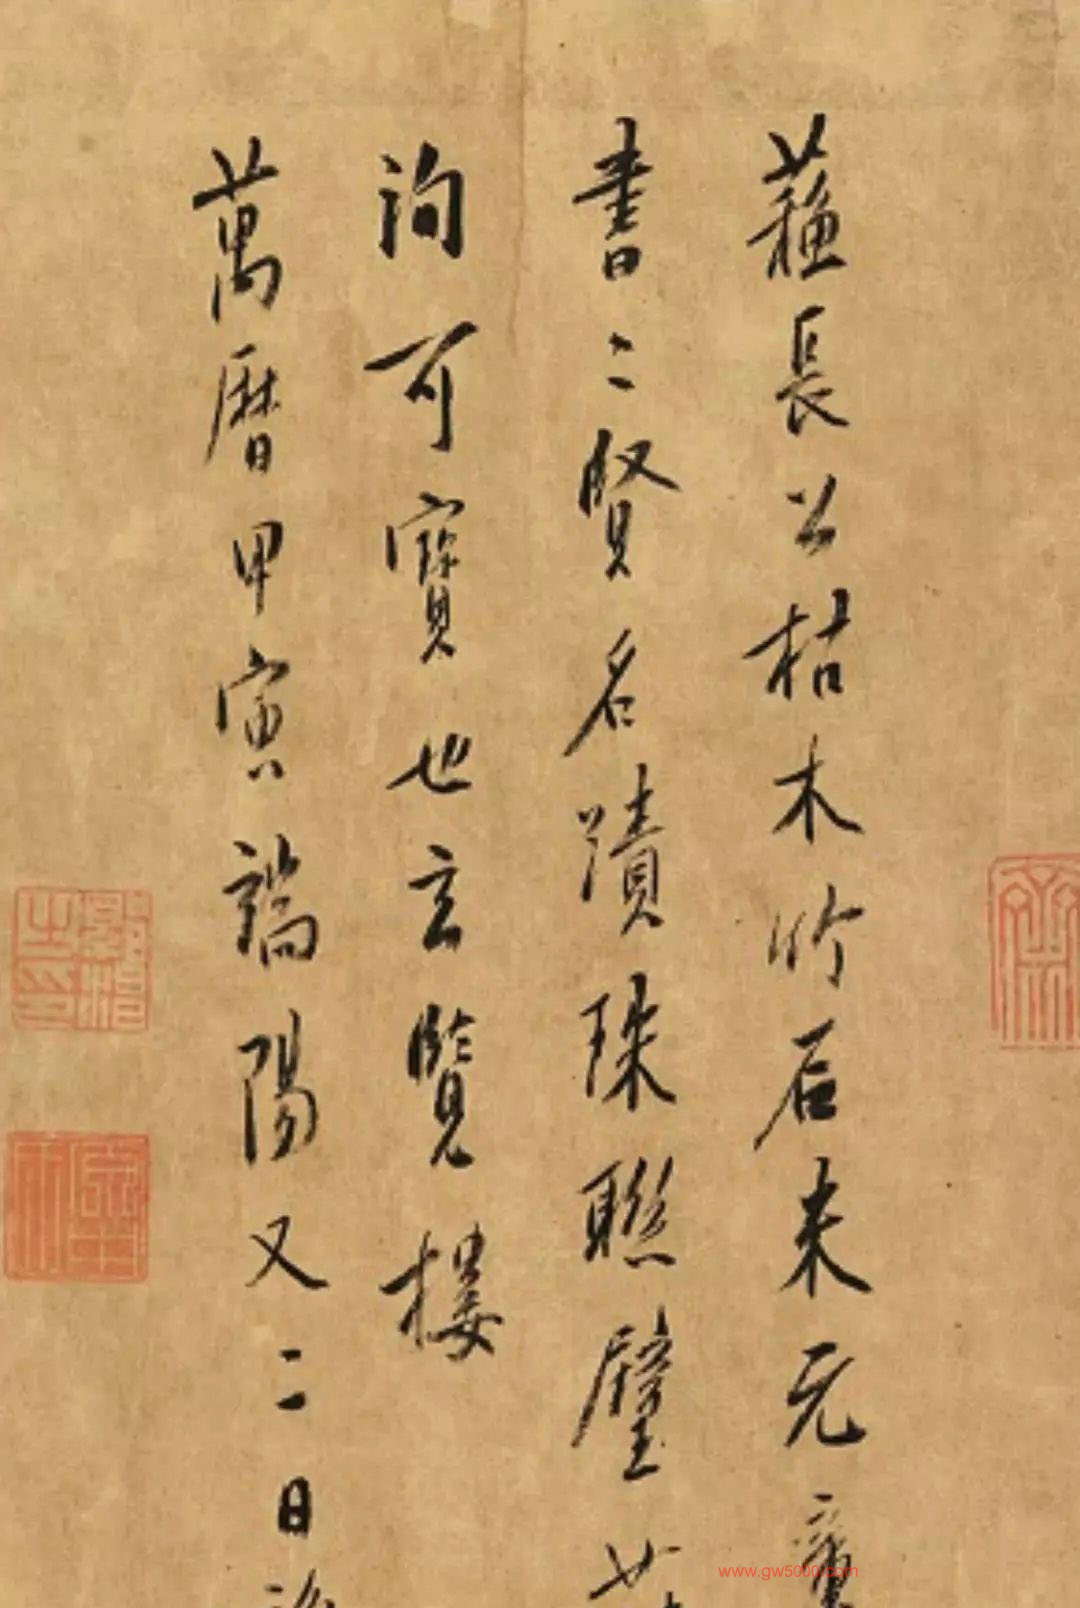 蘇長公枯木竹石米元章
書二賢名蹟珠聯璧
詢可寶也玄覽樓
萬曆甲寅端陽又二日
www.gw5000.com